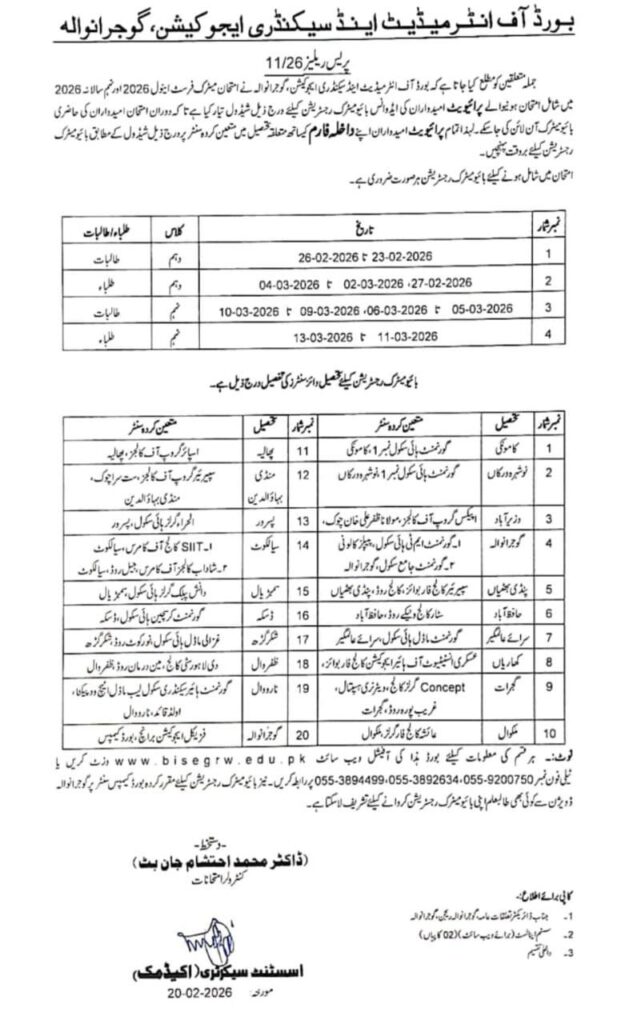 بورڈ آف انٹرمیڈیٹ اینڈ سیکنڈری ایجوکیشن، گوجرانوالہ
پریس ریلیز 11/26
جملہ متعلقین کو مطلع کیا جاتا ہے کہ بورڈ آف انٹرمیڈیٹ اینڈ سیکنڈری ایجوکیشن، گوجرانوالہ نے امتحان میٹرک فرسٹ اینول 2026 اور نہم سالانہ 2026
میں شامل امتحان ہونیوالے پرائیویٹ امیدواران کی ایڈوانس بائیومیٹرک رجسٹریشن کیلئے درج ذیل شیڈول تیار کیا ہے تاکہ دوران امتحان امیدواران کی حاضری
بائیومیٹرک آن لائن کی جا سکے۔ لہذا تمام پرائیویٹ امیدواران اپنے داخلہ فارم کیساتھ متعلقہ تحصیل میں متعین کردہ سنٹر پر درج ذیل شیڈول کے مطابق بائیومیٹرک
رجسٹریشن کیلئے بروقت پہنچیں۔
امتحان میں شامل ہونے کیلئے بائیومیٹرک رجسٹریشن ہر صورت ضروری ہے۔
نمبر شمار تاریخ کلاس طلباء/طالبات
1 23-02-2026 تا 26-02-2026 دہم طالبات
2 27-02-2026، 02-03-2026 تا 04-03-2026 دہم طلباء
3 05-03-2026 تا 06-03-2026، 09-03-2026 تا 10-03-2026 نہم طالبات
4 11-03-2026 تا 13-03-2026 نہم طلباء
بائیومیٹرک رجسٹریشن کیلئے تحصیل وائز سنٹرز کی تفصیل درج ذیل ہے۔
نمبر شمار تحصیل متعین کردہ سنٹر نمبر شمار تحصیل متعین کردہ سنٹر
1 کامونکی گورنمنٹ ہائی سکول نمبر 1، کامونکی 11 پھالیہ اسپائر گروپ آف کالجز، پھالیہ
2 نوشہرہ ورکاں گورنمنٹ ہائی سکول نمبر 1 نوشہرہ ورکاں 12 منڈی بہاؤالدین سپیرئیر گروپ آف کالجز، ست سرا چوک، منڈی بہاؤالدین
3 وزیرآباد ایپکس گروپ آف کالجز، مولانا ظفر علی خان چوک، 13 پسرور الحراء گرلز ہائی سکول، پسرور
4 گوجرانوالہ ۱۔ گورنمنٹ ایم نی ہائی سکول، پیپلز کالونی 14 سیالکوٹ ۱۔ SIIT کالج آف کامرس، سیالکوٹ
۲۔ گورنمنٹ جامع سکول، گوجرانوالہ ۲۔ شاداب کالج آف کامرس، جیل روڈ، سیالکوٹ
5 پنڈی بھٹیاں سپیرئیر کالج فار بوائز، کالج روڈ، پنڈی بھٹیاں 15 سمبڑیال دانش پبلک گرلز ہائی سکول، سمبڑیال
6 حافظ آباد سٹار کالج ونیکے روڈ، حافظ آباد 16 ڈسکہ گورنمنٹ کرسچین ہائی سکول، ڈسکہ
7 سرائے عالمگیر گورنمنٹ ماڈل ہائی سکول، سرائے عالمگیر 17 شکرگڑھ غزالی ماڈل ہائی سکول، نورکوٹ روڈ، شکرگڑھ
8 کھاریاں عسکری انسٹیٹیوٹ آف ہائیر ایجوکیشن کالج فار بوائز، 18 ظفروال دی لاہور سٹی کالج، مین درمان روڈ، ظفروال
9 گجرات Concept گرلز کالج، ویٹرنری ہسپتال، غریب پورہ روڈ، گجرات 19 نارووال گورنمنٹ ہائیر سیکنڈری سکول لیب ماڈل اولڈ قائد، نارووال
10 ملکوال عائشہ کالج فار گرلز، ملکوال 20 گوجرانوالہ فزیکل ایجوکیشن برانچ، بورڈ کیمپس
نوٹ:۔ ہر قسم کی معلومات کیلئے بورڈ ہذا کی آفیشل ویب سائٹ www.bisegrw.edu.pk وزٹ کریں یا
ٹیلی فون نمبر 055-9200750، 055-3892634، 055-3894499 پر رابطہ کریں۔ نیز بائیومیٹرک رجسٹریشن کیلئے مقرر کردہ بورڈ کیمپس سنٹر پر گوجرانوالہ
ڈویژن سے کوئی بھی طالبعلم اپنی بائیومیٹرک رجسٹریشن کروانے کیلئے تشریف لا سکتا ہے۔
-دستخط-
(ڈاکٹر محمد احتشام جان بٹ)
کنٹرولر امتحانات
کاپی برائے اطلاع:۔
1۔ جناب ڈائریکٹر تعلقات عامہ، گوجرانوالہ ریجن، گوجرانوالہ
2۔ سسٹم اینالسٹ (برائے ویب سائٹ) (02 کاپیاں)
3۔ داخلی تقسیم
اسسٹنٹ سیکرٹری (اکیڈمک)
مورخہ 20-02-2026